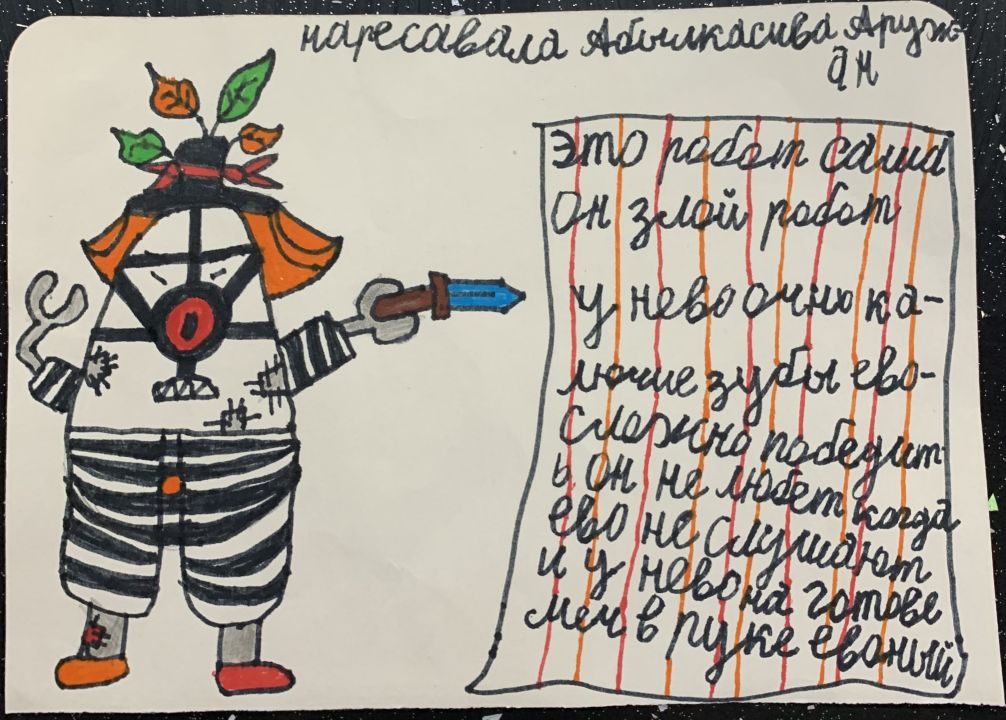 наресавала Абылкасива Аруж-
ан
это робот саша
Он злой робот
у нево очню ка-
лючие зубы ево-
сложно победит-
ь он не любет когда
ево не слушают
и у нево на готове
меч в руке евоный